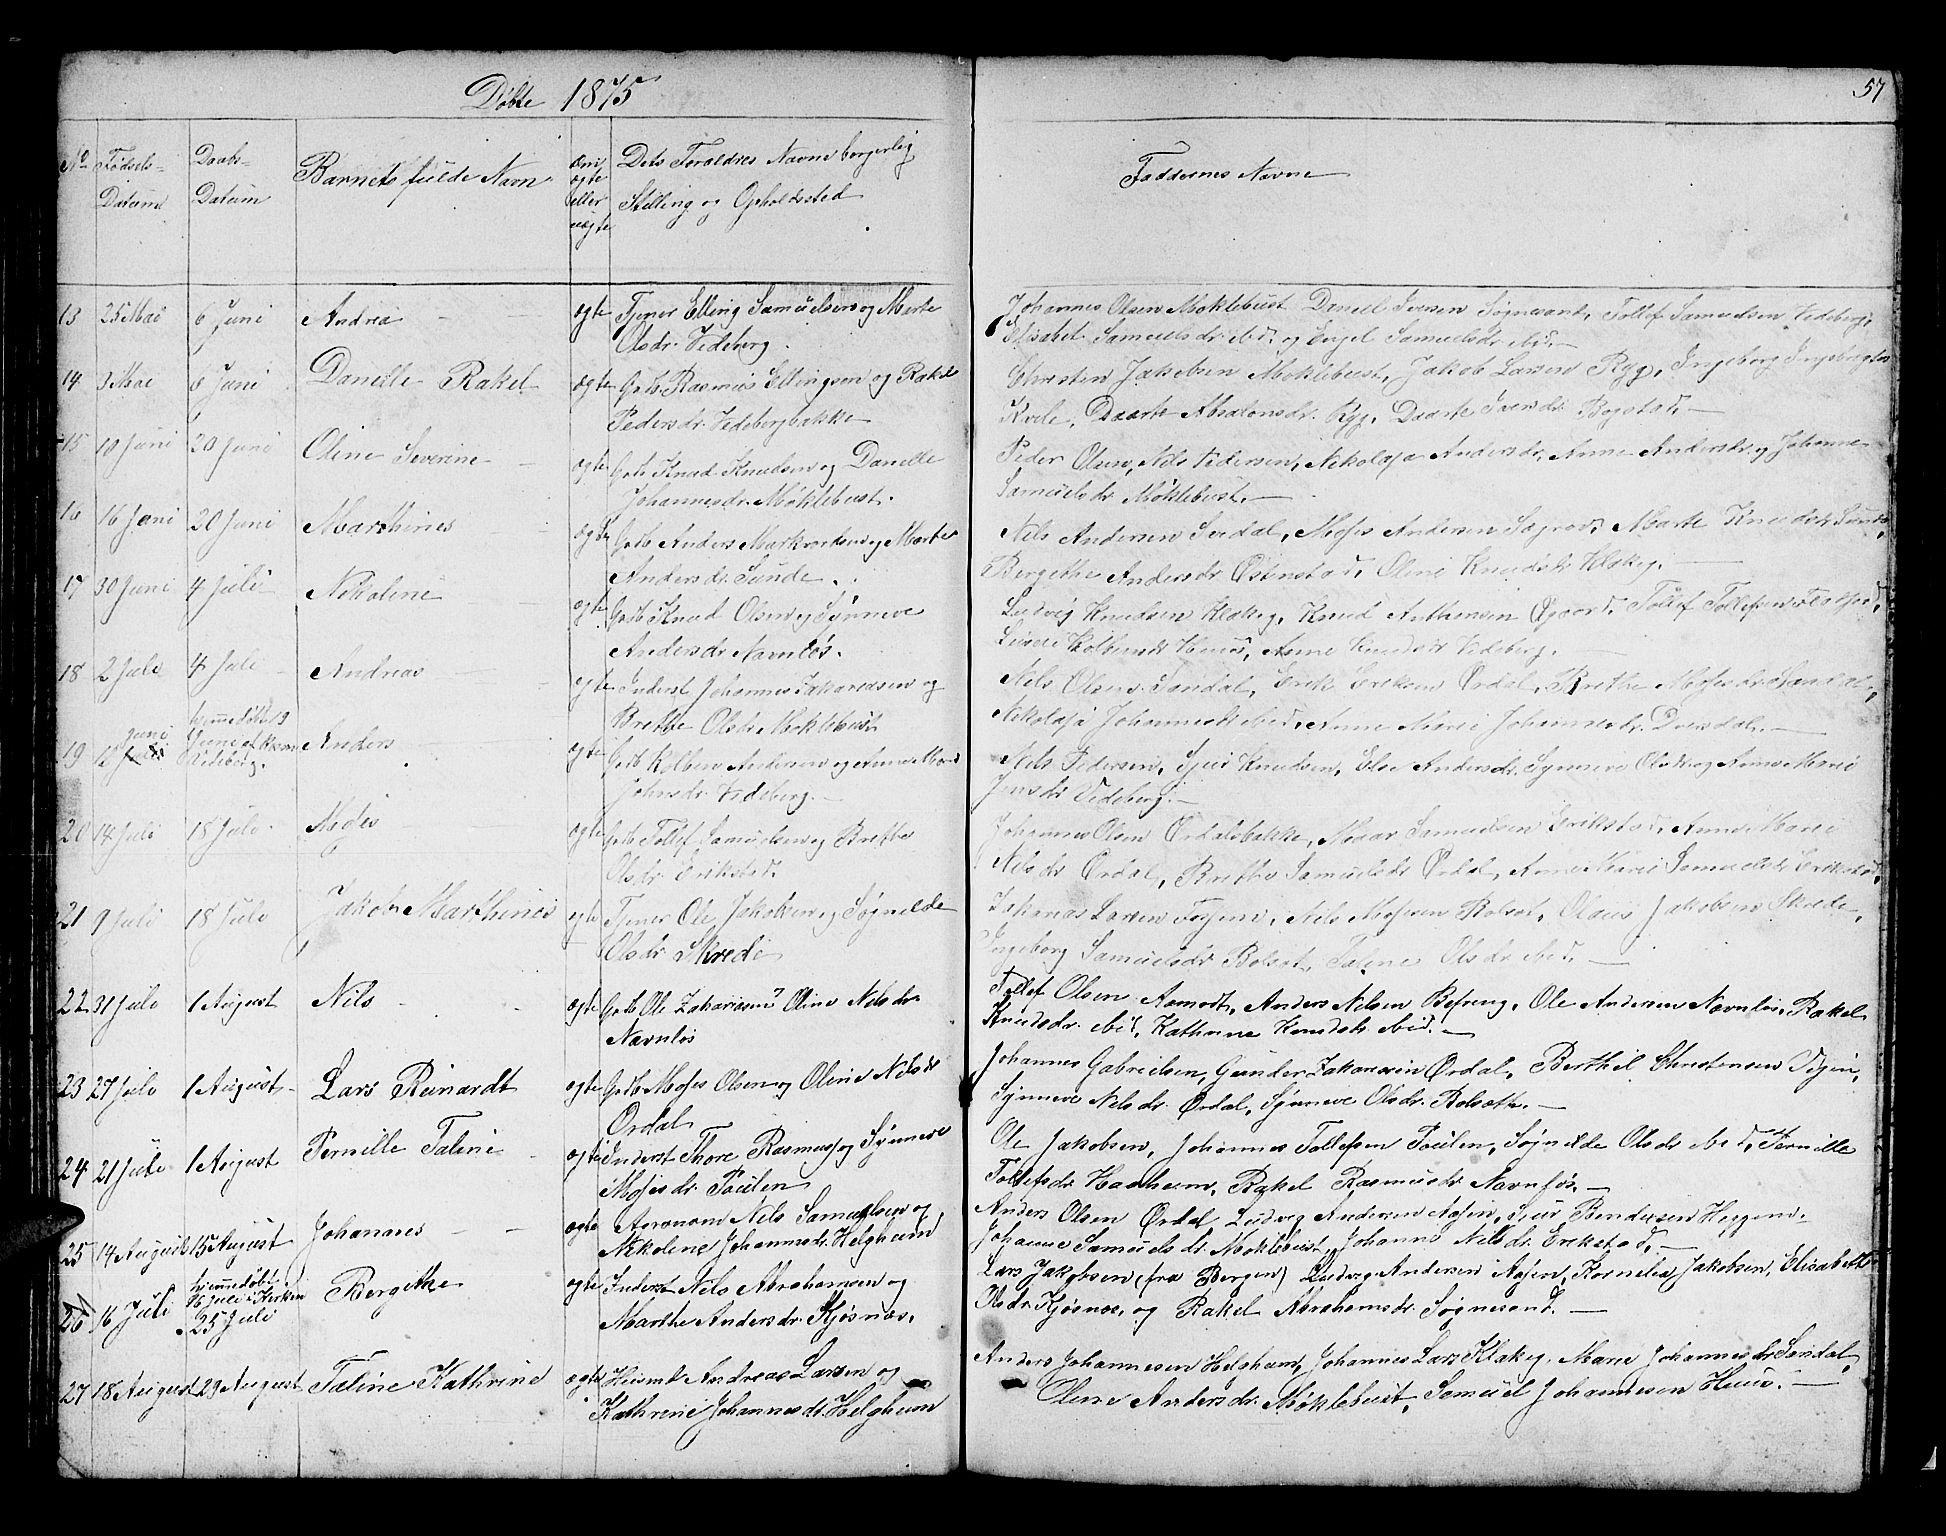 Døbte 1875
57
No Fødsels-Datum Daabs-Datum Barnets fulde Navn om ægte eller uægte Dets Forældres Navne borgerlig Stilling og Opholdssted
Faddernes Navne
13 25 Mai 6 Juni Andrea ægte Tjener Elling Samuelsen og Marte
Olsdr. Vedeberg.
14 3 Mai 6 Juni Danielle Rakel ægte Grdb Rasmus Ellingsen og Rakel
Pedersdr. Vedebergbakke
15 10 Juni 20 Juni Oline Severine ægte Grdb Knud Knudsen og Danielle
Johannesdr. Møklebust.
16 16 Juni 20 Juni Marthines ægte Grdb Anders Markvordsen og Marte
Andersdr. Sunde.
17 30 Juni 4 Juli Nikoline ægte Grdb Knud Olsen og Synneve
Andersdr. Navnløs.
18 2 Juli 4 Juli Andreas ægte Inderst Johannes Zakariasen og
Brethe Olsdr. Møklebust
19 12 Juni hjemmedøbt 13 Juni af Vedeberg. Anders ægte Grdb Kolben Andersen og Anne Marie
Johnsdr. Vedeberg.
20 14 Juli 18 Juli ægte Grdb Tollef Samuelsen og Brethe
Olsdr. Erikstad.
21 9 Juli 18 Juli Jakob Marthines ægte Tjener Ole Jakobsen og Søgnelde
Olsdr. Skrede
22 31 Juli 1 August Nils ægte Grdb Ole Zakariasen Oline Nilsdr.
Navnløs
23 27 Juli 1 August Lars Reinardt ægte Grdb Moses Olsen og Oline Nilsdr
Ordal
24 21 Juli 1 August Pernille Taline ægte Inderst Thore Rasmus og Synneve
Mosesdr. Paulen
25 14 August 15 August Johannes ægte Agronom Nils Samuelsen og
Nikoline Johannesdr. Helgheim
26 16 Juli hjemmedøbt 16 Juli i Kirken 25 Juli Bergithe ægte Inderst Nils Abrahamsen og
Marthe Andersdr. Kjøsnæs.
27 18 August 29 August Taline Kathrine ægte Huusmd Andreas Larsen og
Kathrine Johannesdr. Helgheim
Johannes Olsen Møklebust Daniel Iversen Søgnesand, Tollef Samuelsen Vedeberg,
Elisabet Samuelsdr. ibid. og Engel Samuelsdr. ibid.
Christen Jakobsen Møklebust, Jakob Larsen Ryg, Ingeborg
Kvile, Daarte Absalonsdr. Ryg, Daarte Iversdr. Bogstad.
Peder Olsen, Nils Pedersen, Nikolaja Andersdr, Anne Andersdr. og Johanne
Samuelsdr Møklebust.
Nils Andersen Sandal, Moses Andersen Marte Knudsdr. Sunde,
Bergethe Andersdr. Østenstad, Oline Knudsdr. Klakeg.
Ludvig Knudsen Klakeg, Knud Anthonsen Øgaard, Tollef Tollefsen
Kolbensdr Huus, Anne Knudsdr Vedeberg.
Nils Olsen Sandal, Erik Eriksen Ordal, Brethe Mosesdr. Sandal,
Nikolaja Johannesdr. ibid, Anne Marie Johannesdr. Dversdal.
Nils Pedersen, Sjur Knudsen, Else Andersdr. Synneve Olsdr. og Anne Marie
Jensdr Vedeberg.
Johannes Olsen Ordalsbakke, Samuelsen Erikstad, Anne Marie
Nilsdr Ordal, Brethe Samuelsdr Ordal, Anne Marie Samuelsdr Erikstad,
Larsen Nils Mosesen Bolset, Olaus Jakobsen Skrede,
Ingeborg Samuelsdr Bolset, Taline Olsdr. ibid.
Tollef Olsen Aamodt, Anders Nilsen Befreng, Ole Andersen Navnløs, Rakel
Knudsdr. ibid, Kathrine Knudsdr. ibid.
Johannes Gabrielsen, Gunder Zakariasen Ordal, Berthil Christensen
Synneve Nilsdr. Ørdal, Synneve Olsdr. Bolsæth.
Ole Jakobsen, Johannes Tollefsen Paulen, Søgnelde Olsdr ibid, Pernille
Tollefsdr. Haaheim, Rakel Rasmusdr. Navnløs.
Anders Olsen Ordal Ludvig Andersen Aasen, Sjur Bendixsen Heggem,
Johanne Samuelsdr. Møklebust, Johanne Nilsdr. Erikstad.
Lars Jakobsen (fra Bergen) Ludvig Andersen Aasen, Kornelia Jakobsen, Elisabeth
Olsdr. Kjøsnæs, og Rakel Abrahamsdr. Søgnesand.
Anders Johannesen Helgheim, Johannes Lars. Klakeg. Marie Johannesdr. Sandal,
Oline Andersdr. Møklebust, Samuel Johannesen Huus.